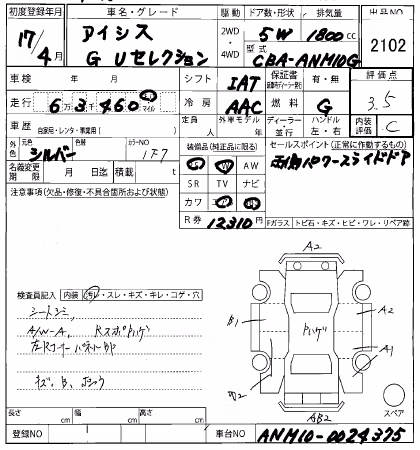 初度登録年月 車名・グレード 駆動 ドア数・形状 排気量 出品NO
17/4月 アイシス G Uセレクション 2WD ・ 4WD 5W 1800cc 2102
型式 CBA-ANM10G
車検 年 月 シフト IAT 保証書 有・無 評価点 3.5
走行 63460 マイル 冷房 AAC 燃料 G
車歴 自家用・レンタ・事業用( ) 定員 人 外車モデル 年 ディーラー・並行 ハンドル 左・右 内装評価 C
外色 元色 シルバー 色替 カラーNO 1F7
装備品(純正品に限る) セールスポイント(正常に作動するもの)
名義変更期限 月 日迄 積載 t
AW 両側パワースライドドア
SR TV ナビ
カワ
注意事項(欠品・修復・不具合箇所および状態)
R券 12,310円 Fガラス トビ石・キズ・ヒビ・ワレ・リペア跡
検査員記入 内装 汚レ・スレ・キズ・キレ・コゲ・穴
シートシミ
A/W-A
キズ、B、
A2
B1
A2
A1
AB2
スペア
長さ cm 幅 cm 高さ cm
登録NO 車台NO ANM10-0024375